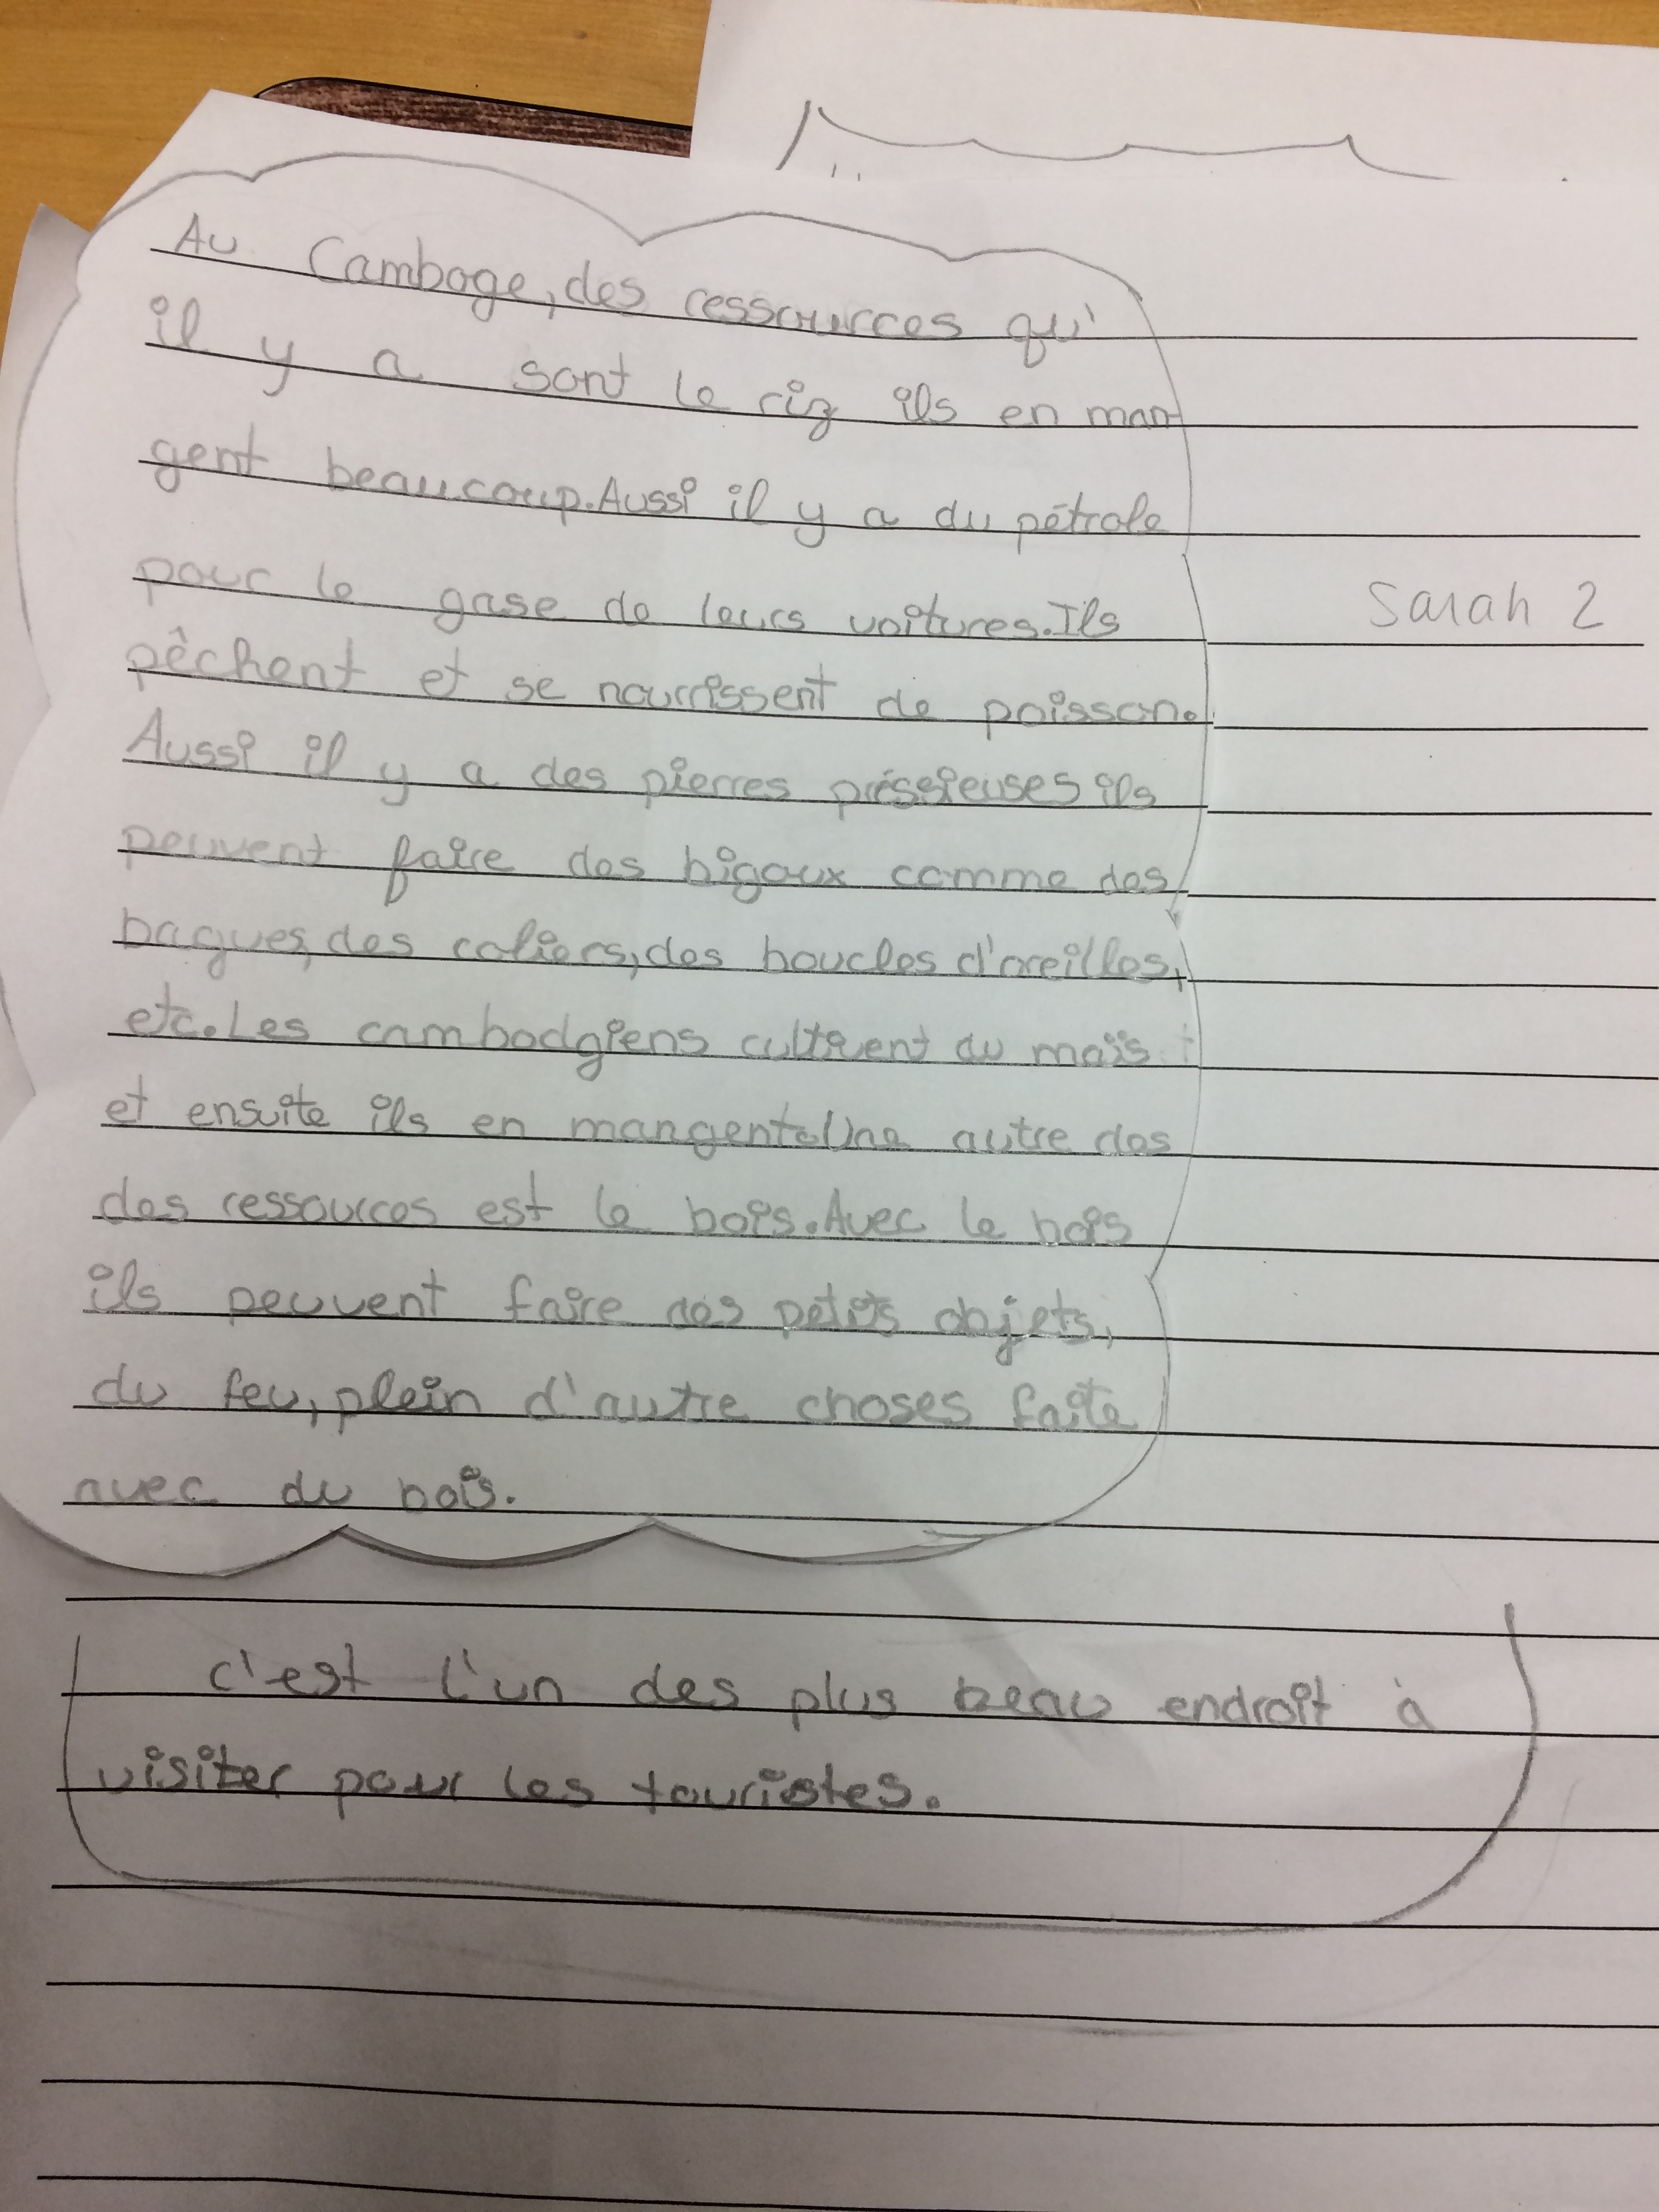 Au Camboge, des ressources qu'
il y a sont le riz ils en man-
gent beaucoup. Aussi il y a du pétrole
pour le gase de leurs voitures. Ils
pêchent et se nourrissent de poisson.
Aussi il y a des pierres préssieuses ils
peuvent faire des bigoux comme des
bagues, des coliers, des boucles d'oreilles,
etc. Les cambodgiens cultivent du maïs
et ensuite ils en mangent. Une autre des
des ressources est le bois. Avec le bois
ils peuvent faire des petits objets,
du feu, plein d'autre choses faite
avec du bois.
Sarah 2
c'est l'un des plus beau endroit à
visiter pour les touristes.